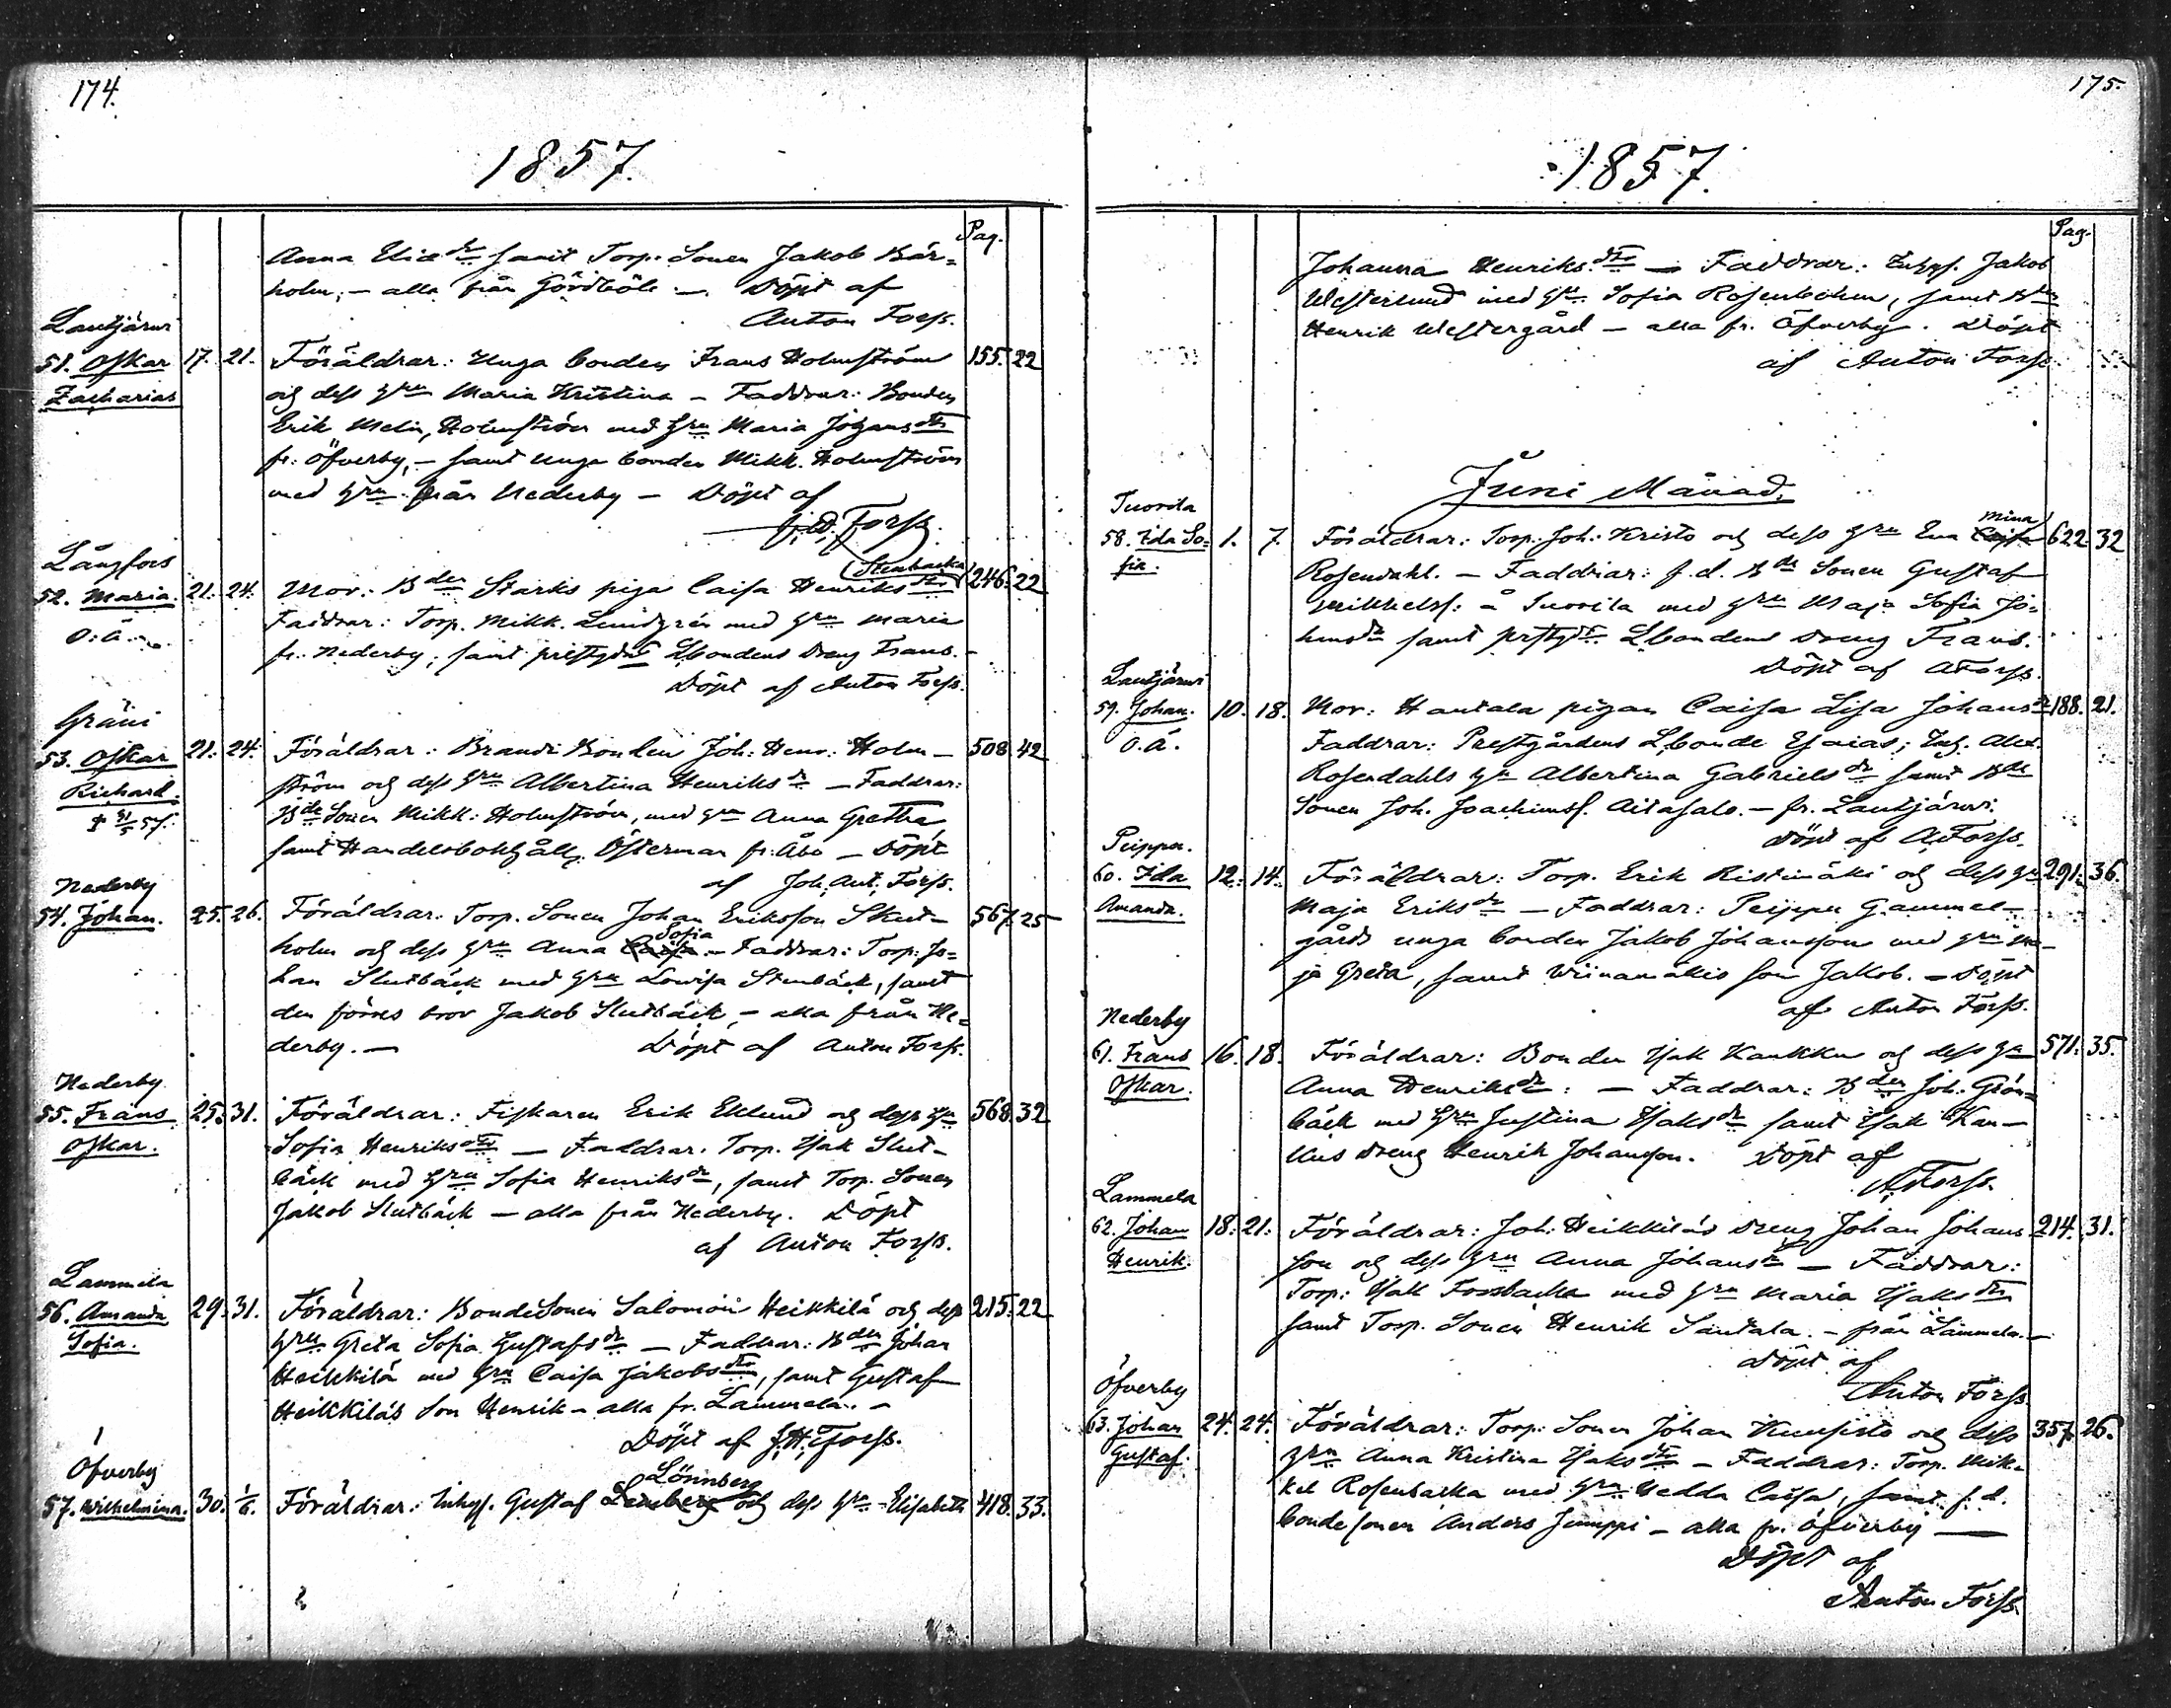 174.
1857.
Pag.
Anna Elias dr samt Torp. Sonen Jakob Bär=
holm, – alla från Gördböle. – Döpt af
Anton Forss.
Lautjärwi
51. Oskar 17. 21. Föräldrar: Unga bonden Frans Holmström 155. 22
Zacharias och dess hru Maria Kristina – Faddrar: Bonden
Erik Holmström med hru Maria Johans dtr
fr: Öfverby, – samt unga bonden Mikk. Holmström
med hru från Nederby – Döpt af
Forss.
Långfors
Stenbacka
52. Maria. 21. 24. Mor: B den Starks piga Caisa Henriks dtr 246. 22
O. ä. Faddrar: Torp. Mikk. Lindgrén med hru Maria
fr. Nederby, samt prestgårds Lbondens dreng Frans. –
Döpt af Anton Forss.
Gräni
53. Oskar 21. 24. Föräldrar: Brandi Bonden Joh: Henr: Holm – 508 42
Richard. ström och dess hru Albertina Henriks dr – Faddrar:
† 31/5 57. B de Sonen Mikk: Holmström, med hru Anna Gretha
samt Handelsbokhåll. Österman fr. Åbo – Döpt
af Joh. Ant. Forss.
Nederby
54. Johan. 25. 26. Föräldrar: Torp. Sonen Johan Eriksson Skut– 567. 25
Sofia
holm och dess hru Anna Caisa – Faddrar: Torp. Jo=
han Slutbäck med hru Lovisa Stenbäck, samt
den förres bror Jakob Slutbäck, – alla från Ne=
derby. – Döpt af Anton Forss.
Nederby
55. Frans 25. 31. Föräldrar: Fiskaren Erik Eklund och dess hru 568 32
Oskar. Sofia Henriks dtr – Faddrar: Torp. Isak Slut–
bäck med hru Sofia Henriks dr, samt Torp. Sonen
Jakob Slutbäck – alla från Nederby. Döpt
af Anton Forss.
Lammela
56. Amanda 29. 31. Föräldrar: BondeSonen Salomon Heikkilä och dess 215. 22
Sofia. hru Greta Sofia Gustafs dr – Faddrar: B den Johan
Heikkilä med hru Caisa Jakobs dtr, samt Gustaf
Heikkiläs Son Henrik – alla fr. Lammela. –
Döpt af Forss.
Öfverby
Lönnberg
57. Wilhelmina. 30. 1/6. Föräldrar: Inhys. Gustaf och dess hru Elisabeth 418. 33.
175.
1857.
Pag.
Johanna Henriks dtr – Faddrar: Inhys. Jakob
Westerlund med hru Sofia Rosenbohm, samt
Henrik Westergård – alla fr. Öfverby. Döpt
af Anton Forss.
Juni Månad.
Tuorila
Mina
58. Ida So= 1. 7. Föräldrar: Torp. Joh: Kristo och dess hru Eva Caisa 622 32
fia. Rosendahl. – Faddrar: f. d. B de Sonen Gustaf
Mikkelss: å Tuorila med hru Maja Sofia Jo=
hans dr samt prstgds Lbondens dreng Frans.
Döpt af AForss.
Lautjärwi
59. Johan. 10. 18. Mor: Hautala pigan Caisa Lisa Johans dr 188. 21.
O. ä. Faddrar: Prestgårdens Lbonde Esaias; Inh. Alex.
Rosendahls hru Albertina Gabriels dr samt B de
Sonen Joh. Joachimss. Aitasalo. – fr. Lautjärwi.
Döpt af AForss.
Peippu.
60. Ida 12. 14. Föräldrar: Torp. Erik Ristimäki och dess hru 291. 36.
Amanda. Maja Eriks dr – Faddrar: Peippu Gammel–
gårds unga bonden Jakob Johansson med hru Ma–
ja Greta, samt Wiinamäkis son Jakob. – Döpt
af Anton Forss.
Nederby
61. Frans 16. 18. Föräldrar: Bonden Isak Kaukku och dess hru 571. 35.
Oskar. Anna Henriks dr: – Faddrar: B den Joh. Grön=
bäck med hru Justina Isaks dr samt Isak Kau–
kus dreng Henrik Johansson. Döpt af
AForss.
Lammela
62. Johan 18. 21. Föräldrar: Joh. Heikkiläs dreng Johan Johans 214. 31.
Henrik. son och dess hru Anna Johans dr – Faddrar:
Torp: Isak Forsbacka med hru Maria Isaks dtr
samt Torp. Sonen Henrik Santala. – från Lammela. –
Döpt af
Anton Forss
Öfverby
63. Johan 24. 24. Föräldrar: Torp. Sonen Johan Kuusisto och dess 357. 26.
Gustaf. hru Anna Kristina Isaks dtr – Faddrar: Torp. Mik=
kel Rosenbacka med hru Hedda Caisa, samt f. d.
bondesonen Anders Jumppi – alla fr. Öfverby –
Döpt af
Anton Forss